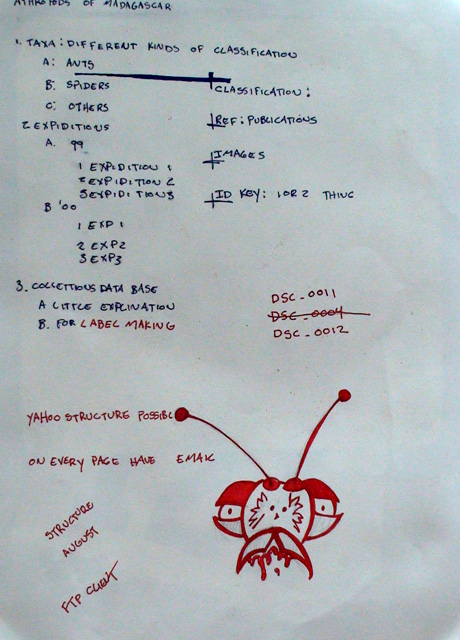 ATHROPODS OF MADAGASCAR
1. TAXA: DIFFERENT KINDS OF CLASSIFICATION
A: ANTS
B: SPIDERS
C: OTHERS
CLASSIFICATION:
REF: PUBLICATIONS
IMAGES
ID KEY: 1 OR 2 THING
2 EXPIDITIONS
A. 99
1 EXPIDITION 1
2 EXPIDITION 2
3 EXPIDITION 3
B '00
1 EXP 1
2 EXP 2
3 EXP 3
3. COLLECTIONS DATA BASE
A LITTLE EXPLINATION
B. FOR LABEL MAKING
DSC_0011
DSC_0004
DSC_0012
YAHOO STRUCTURE POSSIBLE
ON EVERY PAGE HAVE EMAIL
STRUCTURE
AUGUST
FTP CLIENT